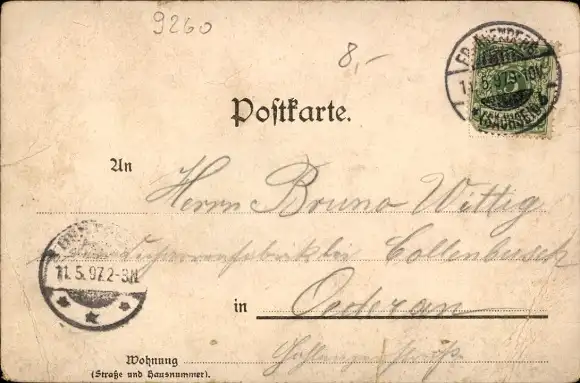 9260
8,-
FRANKENBERG
11.5.97.9-10V.
(SACHSEN)
Postkarte.
An Herrn Bruno Wittig
bei Collenbusch
11.5.97.2-3N.
in Oederan
Wohnung
(Straße und Hausnummer).